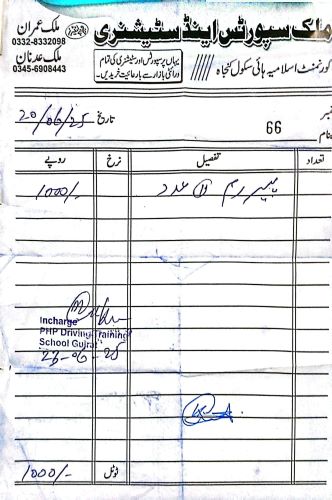 ملک سپورٹس اینڈ سٹیشنری
ملک عمران
0332-8332098
ملک عدنان
0345-6908443
یہاں پر سپورٹس اور سٹیشنری کی تمام
ورائٹی بازار سے بارعایت خریدیں۔
گورنمنٹ اسلامیہ ہائی سکول کنجاہ
نمبر 66 تاریخ 20/06/25
بنام
تعداد تفصیل نرخ روپے
پیپر رم عدد 1000/-
Incharge
PHP Driving Training
School Gujrat
23-06-25
ٹوٹل 1000/-